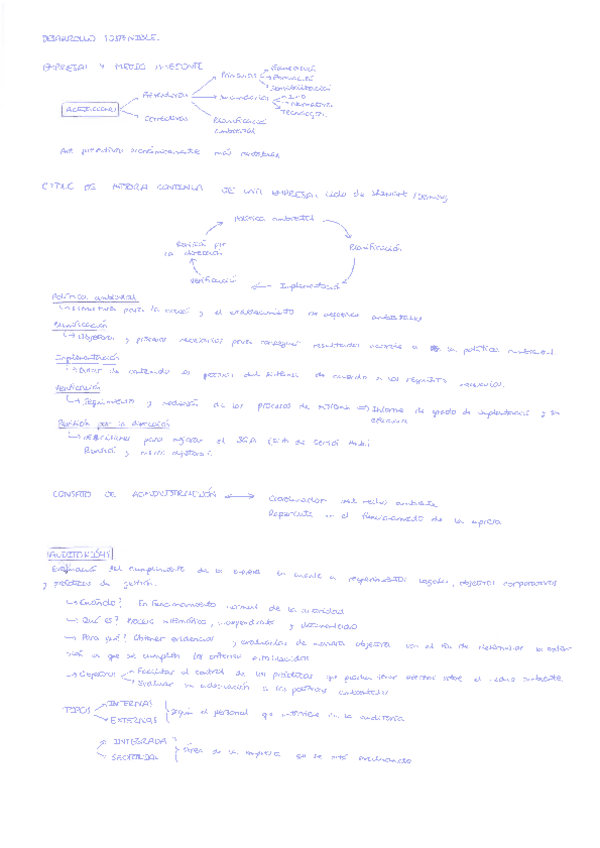 DESARROLLO SOSTENIBLE.
EMPRESAS Y MEDIO AMBIENTE
ACTUACIONES
Preventivas
Correctoras
Primarias
Secundarias
Planificació ambiental
Formació
Sensibilización
I+D
Normativa
Tecnológ.
Act preventivas económicamente más rentables
CICLO DE MEJORA CONTINUA DE UNA EMPRESA. Ciclo de Shewhart /Deming
Política ambiental
Planificación
Implementació
Verificació
Revisión por la dirección
Política ambiental
Estructura para la y el establecimiento de objetivos ambientales
Planificación
Objetivos y procesos necesarios para conseguir resultados acordes a su política ambiental.
Implementación
del sistema de acuerdo a los requisitos
Verificación
Seguimiento y medición de los procesos de sistema => Informe de grado de implementació y su
Revisión por la dirección
para mejorar el SGA (Sist de Gestió Amb.)
objetivos.
CONSEJO DE ADMINISTRACIÓN
Coordinador del medio ambiente
Repercute en el funcionamiento de la empresa
AUDITORÍAS
Evaluació del cumplimiento de la empresa en cuanto a requerimientos legales, objetivos corporativos
y prácticas de gestión.
¿Cuándo? En funcionamiento normal de la actividad
¿Qué es? Proceso sistemático, independiente y documentado
¿Para qué? Obtener evidencias y evaluarlas de manera objetiva con el fin de determinar la exten-
sión en que se cumplen los criterios establecidos
Objetivos
Facilitar el control de las prácticas que puedan tener efectos sobre el medio ambiente
Evaluar su adecuación a las políticas ambientales
TIPOS
INTERNAS
EXTERNAS
Según el personal que interviene en la auditoría
INTEGRADA
SECTORIAL
Área de la empresa que se está evaluando